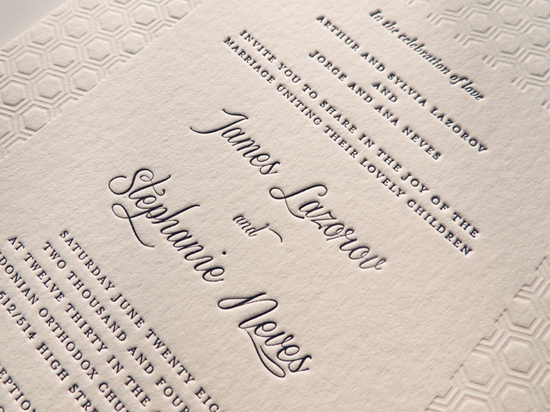 In the celebration of love
ARTHUR AND SYLVIA LAZOROV
AND
JORGE AND ANA NEVES
INVITE YOU TO SHARE IN THE JOY OF THE
MARRIAGE UNITING THEIR LOVELY CHILDREN
James Lazorov
and
Stephanie Neves
SATURDAY JUNE TWENTY EIG
TWO THOUSAND AND FOUR
AT TWELVE THIRTY IN THE
DONIAN ORTHODOX CHU
512/514 HIGH STRE
EPTION